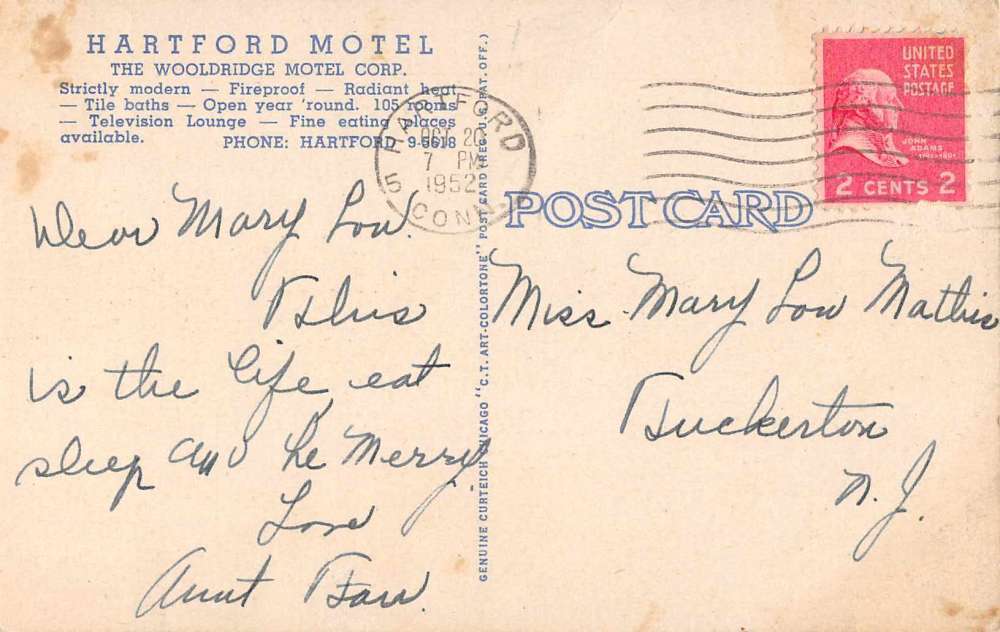 HARTFORD MOTEL
THE WOOLDRIDGE MOTEL CORP.
Strictly modern — Fireproof — Radiant heat
— Tile baths — Open year 'round. 105 rooms
— Television Lounge — Fine eating places
available. PHONE: HARTFORD 9-5618
HARTFORD
OCT 20
7 PM
1952
5 CONN.
UNITED
STATES
POSTAGE
JOHN
ADAMS
2 CENTS 2
POST CARD
GENUINE CURTEICH CHICAGO "C.T. ART-COLORTONE" POST CARD (REG. U.S. PAT. OFF.)
Dear Mary Lou.
This
is the life, eat
sleep and be Merry
Love
Aunt
Miss. Mary Lou Mathis
Tuckerton
N.J.